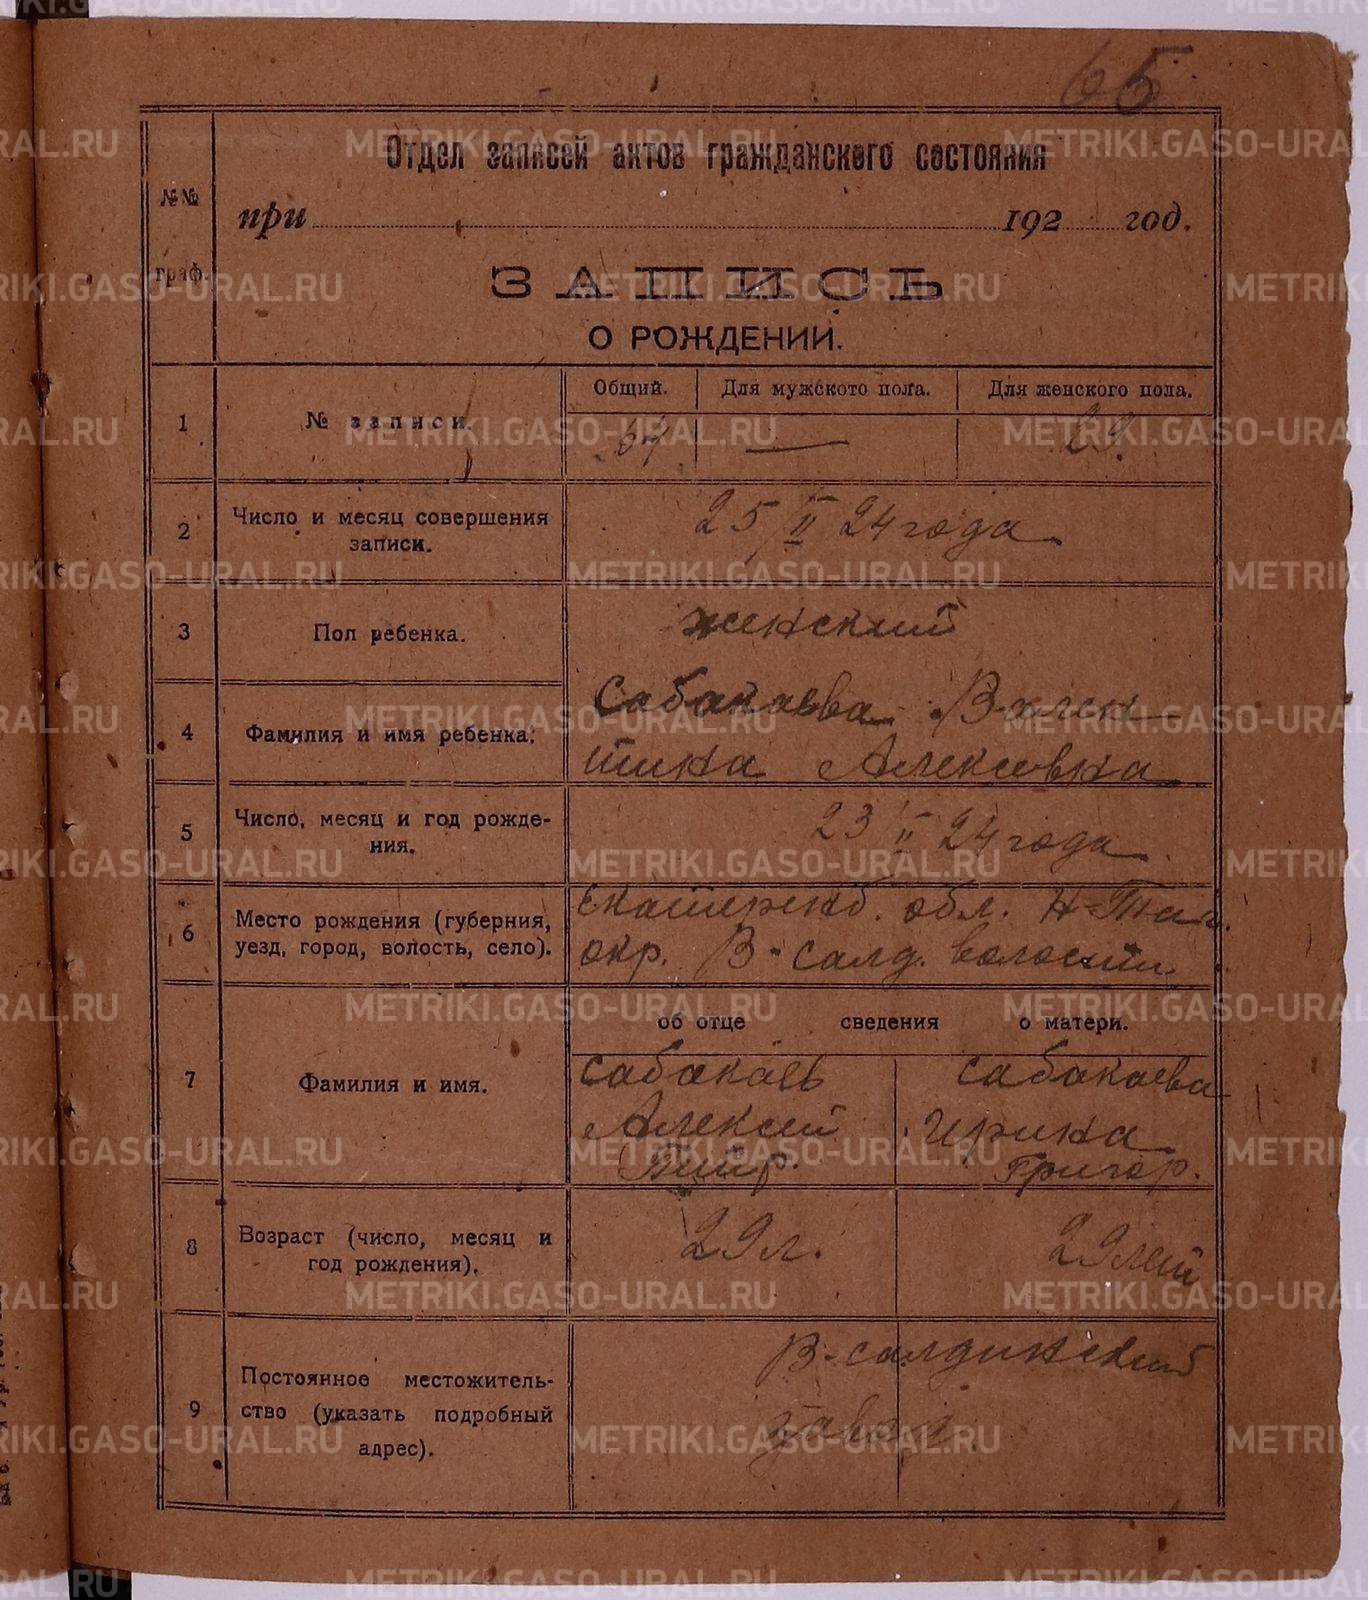 65
Отдел записей актов гражданского состояния
№№ граф.
при 192 год.
ЗАПИСЬ
О РОЖДЕНИИ.
Общий. Для мужского пола. Для женского пола.
1 № записи. 67 — 29.
2 Число и месяц совершения записи. 25/II 24 года
3 Пол ребенка. женский
4 Фамилия и имя ребенка. Сабакаева Вален
тина Алексевна
5 Число, месяц и год рожде-
ния. 23 II 24 года
6 Место рождения (губерния, Екатеренб. обл. Н-Таг.
уезд, город, волость, село). окр. В-салд. волости
об отце сведения о матери.
7 Фамилия и имя. Сабакаев Сабакаева
Алексий Ирина
Григор.
8 Возраст (число, месяц и 29 л. 29 лет
год рождения).
9 Постоянное местожитель- В-салдинский
ство (указать подробный завод.
адрес).
METRIKI.GASO-URAL.RU